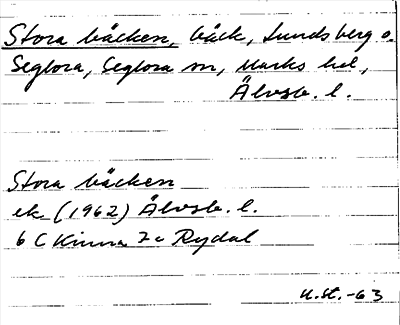 Stora bäcken, bäck, Lundsberg o.
Seglora, Seglora sn, Marks hd,
Älvsb. l.
Stora bäcken
ek. (1962) Älvsb. l.
6 C Kinna 7c Rydal
U.St.-63